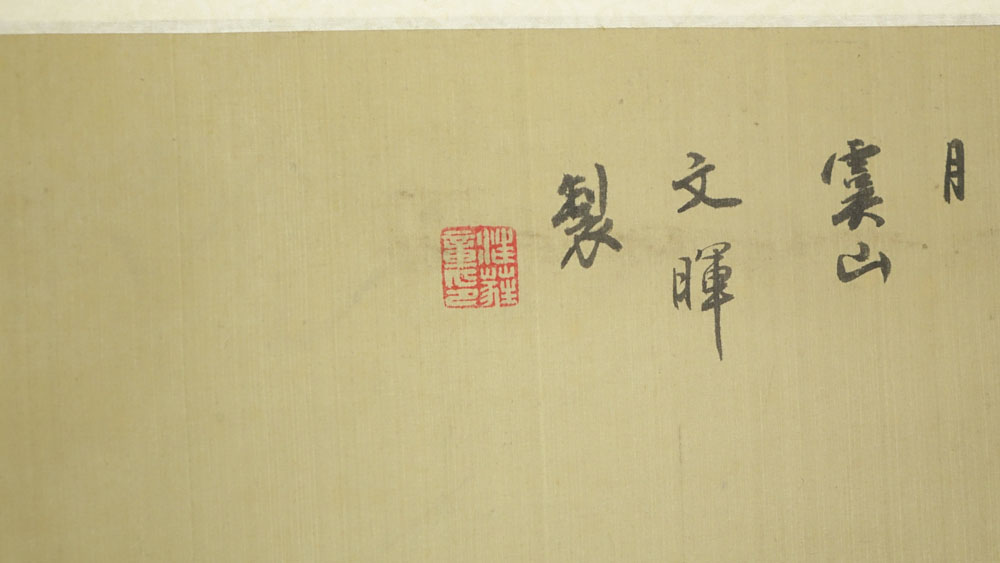 月
虞山
文暉
製